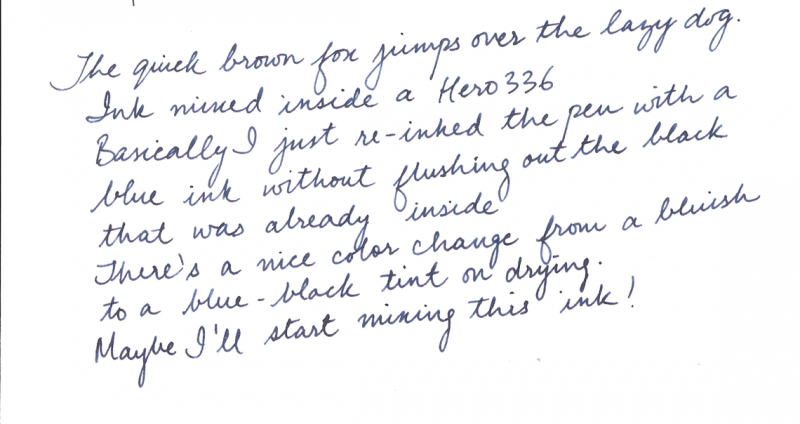 The quick brown fox jumps over the lazy dog.
Ink mixed inside a Hero 336
Basically I just re-inked the pen with a
blue ink without flushing out the black
that was already inside
There's a nice color change from a bluish
to a blue-black tint on drying.
Maybe I'll start mixing this ink!